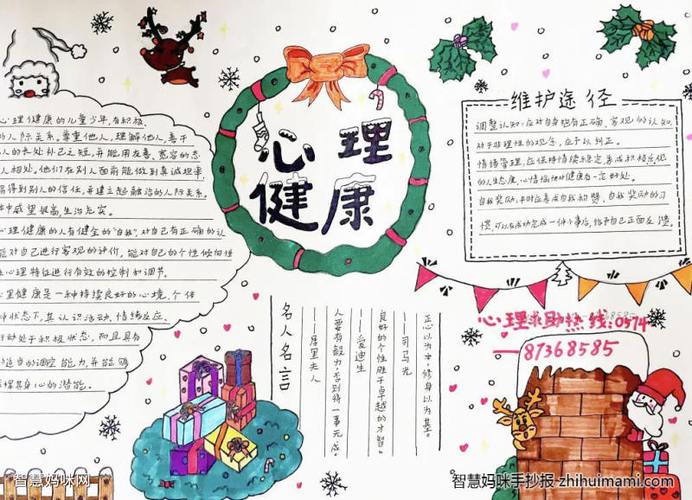 心理健康
心理健康的儿童少年,有积极
的人际关系,尊重他人,理解他人,善于
人的长处补己之短,并能用友善、宽容的态
人相处。他们在别人面前能做到真诚坦率,
易得到别人的信任,并建立起融洽的人际关系。
体中威望很高,生活充实。
心理健康的人有健全的"自我",对己有正确的认
能对自己进行客观的评价,能对自己的个性倾向性
心理特征进行有效的控制和调节。
心里健康是一种持续良好的心境,个体
种状态下,其认识活动,情绪反应,
行动处于积极状态,而且具有
适当的调控能力,并能够
发挥其身心的潜能。
维护途径
调整认知:应对自身抱有正确、客观的认知,
对于非理性的观念,应予以纠正。
情绪管理:应保持情绪稳定,养成积极乐观
的人生态度,心情愉快对健康有一定好处。
自我奖励:平时应养成自我和赞、自我奖励的习
惯,可以在成功完成一件小事后,给予自己正面反馈。
名人名言
正心以为本,修身以为基。
——司马光
良好的个性胜于卓越的才智。
——爱迪生
人要有毅力,否则将一事无成。
——居里夫人
心理求助热线:0574
—87368585
智慧妈咪网
智慧妈咪手抄报 zhihuimami.com